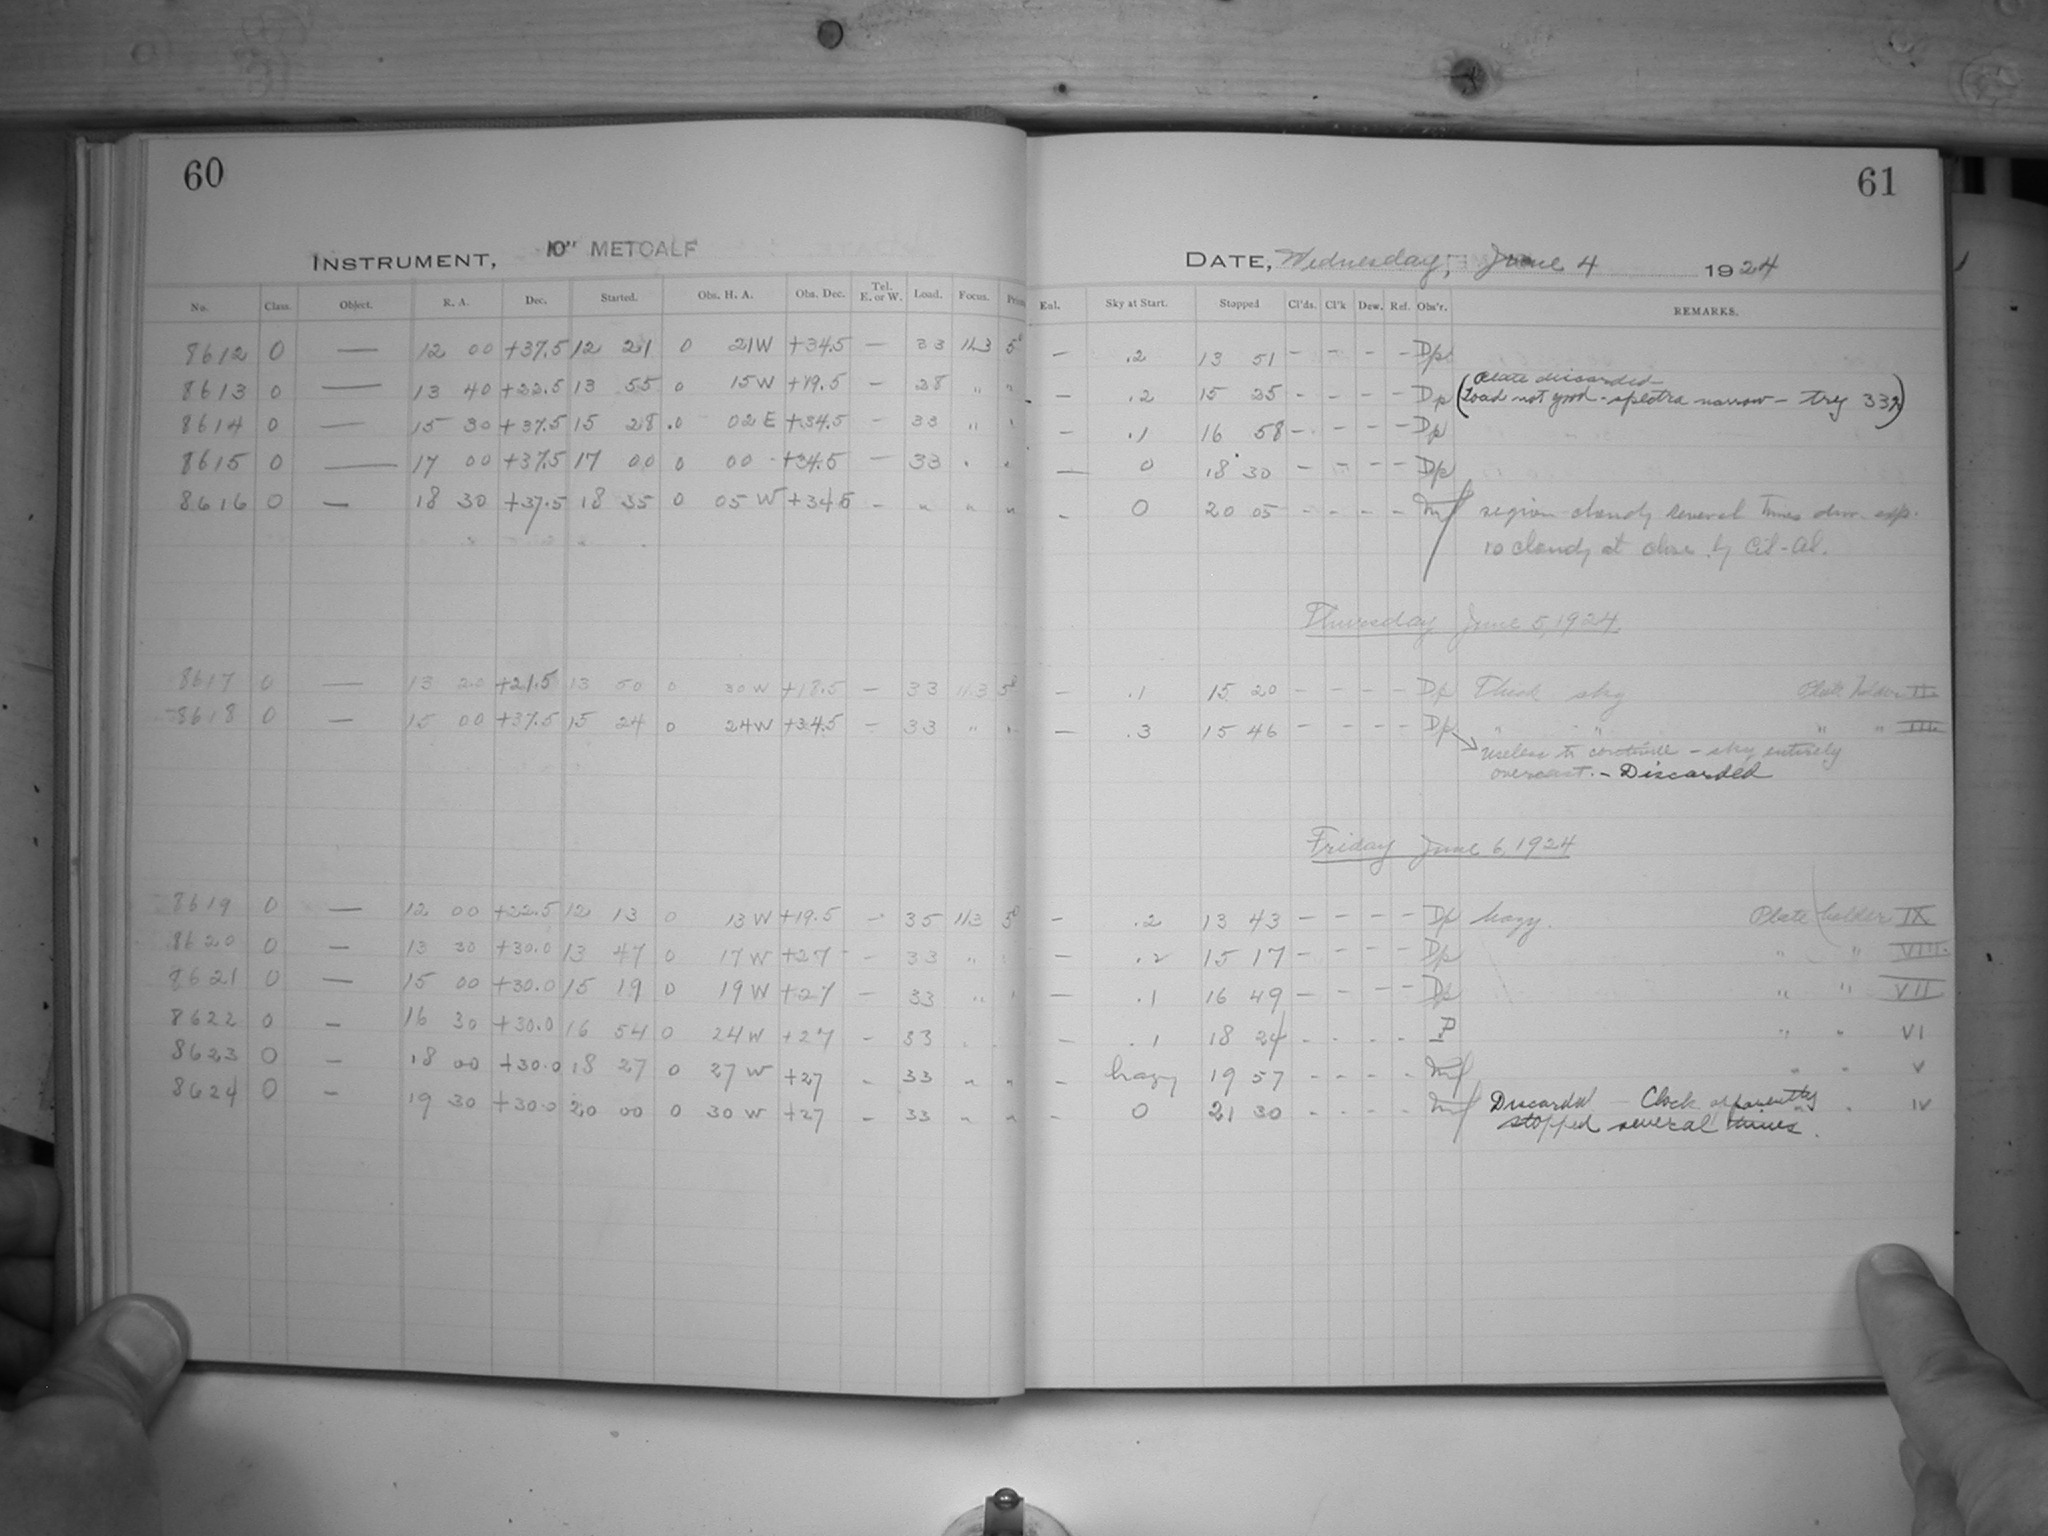 60
61
INSTRUMENT, 10" METCALF
DATE, Wednesday, June 4 1924
No. Class. Object. R. A. Dec. Started. Obs. H. A. Obs. Dec. Tel. E. or W. Load. Focus. Enl. Sky at Start. Stopped Cl'ds. Cl'k Dew. Ref. Obs'r. REMARKS.
8612 0 — 12 00 +37.5 12 21 0 21W +34.5 — 33 11.3 — .2 13 51 – – – – Dp
plate discarded
8613 0 — 13 40 +22.5 13 55 0 15W +19.5 – 28 " " – .2 15 25 – – – – Dp (Load not good - spectra narrow - try 33)
8614 0 — 15 30 +37.5 15 28 0 02E +34.5 – 33 " " – .1 16 58 – – – – Dp
8615 0 — 17 00 +37.5 17 00 0 00 +34.5 — 33 " " — 0 18 30 – – – – Dp
8616 0 — 18 30 +37.5 18 35 0 05 W +34.5 – " " " – 0 20 05 – – – – region cloudy several times dur. exp.
10 cloudy at close by
Thursday June 5, 1924
8617 0 — 13 20 +21.5 13 50 0 30W +18.5 – 33 11.3 – .1 15 20 – – – – Dp Thick sky Plate holder II
8618 0 — 15 00 +37.5 15 24 0 24W +34.5 – 33 " " – .3 15 46 – – – – Dp " " " " III
useless to continue – sky entirely
overcast. – Discarded
Friday June 6, 1924
8619 0 — 12 00 +22.5 12 13 0 13W +19.5 – 35 11.3 – .2 13 43 – – – – Dp hazy. Plate holder IX
8620 0 — 13 30 +30.0 13 47 0 17W +27 – 33 " " – .2 15 17 – – – – Dp " " VIII
8621 0 — 15 00 +30.0 15 19 0 19W +27 – 33 " " – .1 16 49 – – – – Dp " " VII
8622 0 – 16 30 +30.0 16 54 0 24W +27 – 33 " " – .1 18 24 – – – – P " " VI
8623 0 – 18 00 +30.0 18 27 0 27W +27 – 33 " " – hazy 19 57 – – – – " " V
8624 0 – 19 30 +30.0 20 00 0 30W +27 – 33 " " – 0 21 30 – – – – Discarded – Clock apparently " " IV
stopped several times.